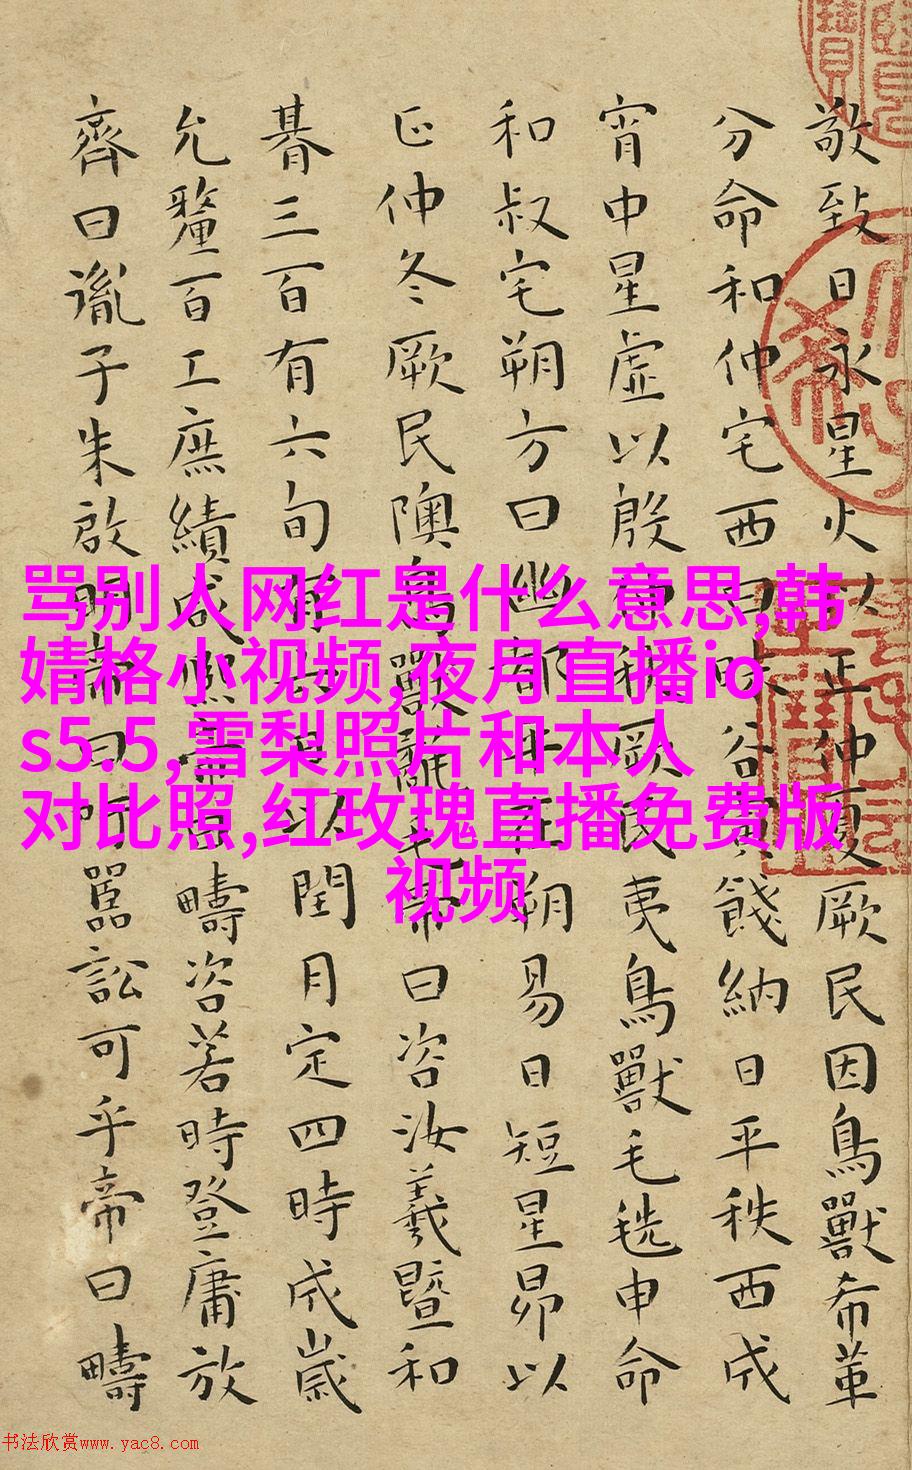 敬致日永星火以正仲夏厥民因鳥獸希革
分命和仲宅西曰昧谷寅餞納日平秩西成
宵中星虛以殷仲秋厥民夷鳥獸毛毨申命
和叔宅朔方曰幽都平在朔易日短星昴以
正仲冬厥民隩鳥獸氄毛帝曰咨汝羲暨和
朞三百有六旬有六日以閏月定四時成歲
允釐百工庶績咸熙帝曰疇咨若時登庸放
齊曰胤子朱啟明帝曰吁嚚訟可乎帝曰疇
骂别人网红是什么意思,韩
婧格小视频,夜月直播io
s5.5,雪梨照片和本人
对比照,红玫瑰直播免费版
视频
书法欣赏www.yac8.com